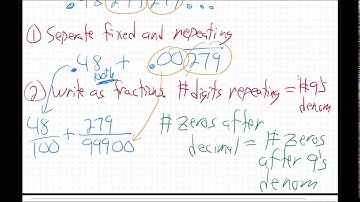 .48 279 279 ...
① Seperate fixed and repeating
.48 + .00279
② Write as fractions. # digits repeating = # 9's denom
48/100 + 279/99900
# zeros after decimal = # zeros after 9's denom